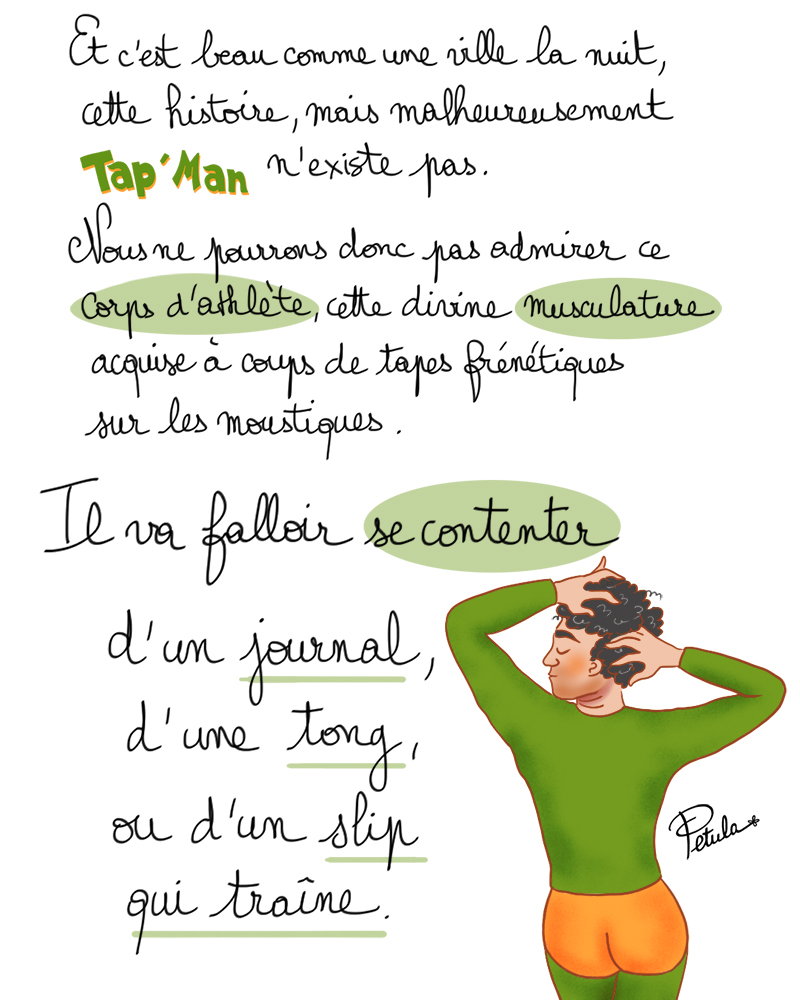 Et c'est beau comme une ville la nuit,
cette histoire, mais malheureusement
Tap'Man n'existe pas.
Nous ne pourrons donc pas admirer ce
corps d'athlète, cette divine musculature
acquise à coups de tapes frénétiques
sur les moustiques.
Il va falloir se contenter
d'un journal,
d'une tong,
ou d'un slip
qui traîne.
Petula